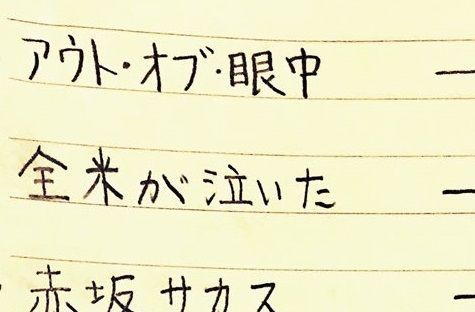 アウト・オブ・眼中
全米が泣いた
赤坂サカス